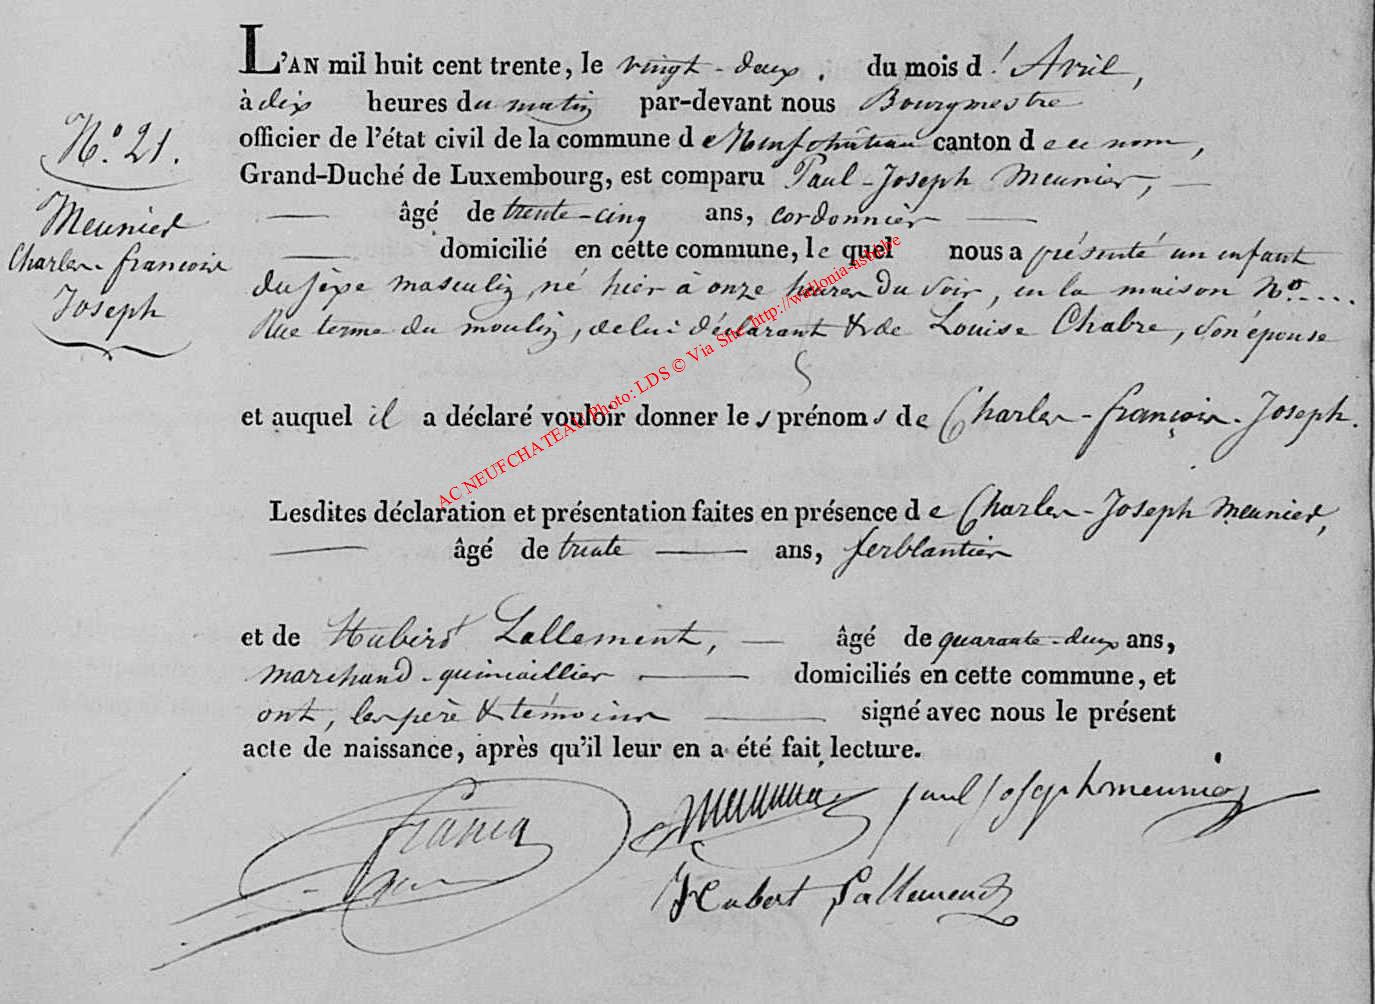 L'AN mil huit cent trente, le vingt-deux. du mois d'Avril,
à dix heures du matin par-devant nous Bourgmestre
N.° 21.
officier de l'état civil de la commune de Neufchâteau canton de ce nom,
Grand-Duché de Luxembourg, est comparu Paul-Joseph Meunier, —
Meunier
— âgé de trente-cinq ans, cordonnier —
Charles-françois
— domicilié en cette commune, le quel nous a présenté un enfant
Joseph
du sexe masculin, né hier à onze heures du soir, en la maison N.o....
Rue terme du moulin, de lui déclarant & de Louise Chabre, son épouse
et auquel il a déclaré vouloir donner les prénoms de Charles-françois-Joseph.
Lesdites déclaration et présentation faites en présence de Charles-Joseph Meunier,
— âgé de trente — ans, ferblantier
et de Hubert Lallement, — âgé de quarante-deux ans,
marchand-quincaillier — domiciliés en cette commune, et
ont, les père & témoins — signé avec nous le présent
acte de naissance, après qu'il leur en a été fait lecture.
Meunier paul joseph meunier
Hubert Lallement
AC NEUFCHATEAU Photo: LDS © Via Site http://wallonia-asbl.be